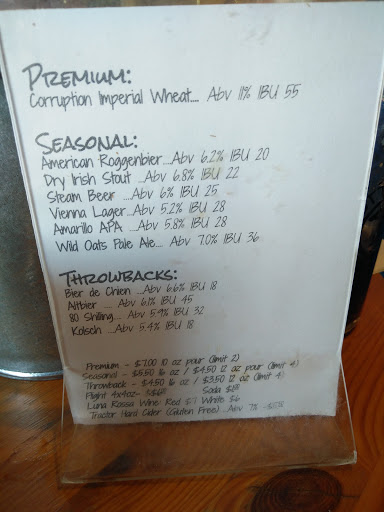 Premium:
Corruption Imperial Wheat.... Abv 11% IBU 55
Seasonal:
American Roggenbier....Abv 6.2% IBU 20
Dry Irish Stout ....Abv 6.8% IBU 22
Steam Beer ....Abv 6% IBU 25
Vienna Lager....Abv 5.2% IBU 28
Amarillo APA .... Abv 5.8% IBU 28
Wild Oats Pale Ale.... Abv 7.0% IBU 36
Throwbacks:
Bier de Chien ....Abv 6.6% IBU 18
Altbier .... Abv 6.1% IBU 45
80 Shilling.... Abv 5.9% IBU 32
Kolsch ....Abv 5.4% IBU 18
Premium - $7.00 10 oz pour (limit 2)
Seasonal - $5.50 16 oz / $4.50 12 oz pour (limit 4)
Throwback - $4.50 16 oz / $3.50 12 oz (limit 4)
Flight 4x4oz- Soda
Luna Rossa Wine: Red $7 White $6
Tractor Hard Cider (Gluten Free) ...Abv 7%